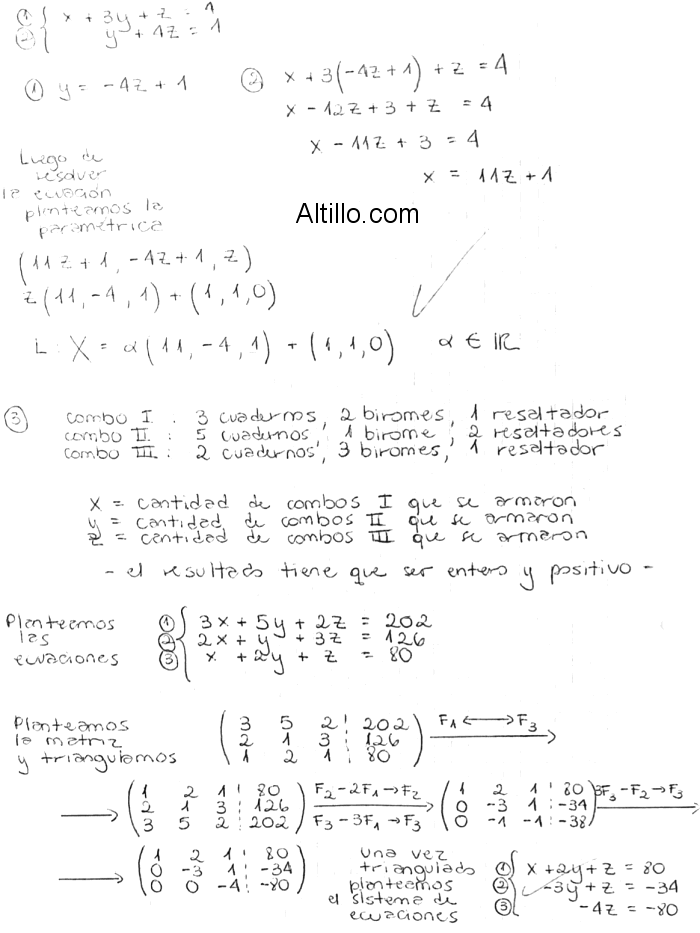 ① { x + 3y + z = 4
② { y + 4z = 1
① y = -4z + 1
② x + 3(-4z+1) + z = 4
x - 12z + 3 + z = 4
x - 11z + 3 = 4
x = 11z + 1
Luego de
resolver
la ecuación
planteamos la
paramétrica
Altillo.com
(11z+1, -4z+1, z)
z(11,-4,1) + (1,1,0)
L: X = α(11,-4,1) + (1,1,0) α ∈ IR
③ combo I : 3 cuadernos, 2 biromes, 1 resaltador
combo II : 5 cuadernos, 1 birome, 2 resaltadores
combo III : 2 cuadernos, 3 biromes, 1 resaltador
x = cantidad de combos I que se armaron
y = cantidad de combos II que se armaron
z = cantidad de combos III que se armaron
- el resultado tiene que ser entero y positivo -
Planteamos
las
ecuaciones
① { 3x + 5y + 2z = 202
② { 2x + y + 3z = 126
③ { x + 2y + z = 80
Planteamos
la matriz
y triangulamos
( 3 5 2 ¦ 202 ) F1 ⟷ F3
( 2 1 3 ¦ 126 ) ⟶
( 1 2 1 ¦ 80 )
⟶ ( 1 2 1 ¦ 80 ) F2 - 2F1 → F2
( 2 1 3 ¦ 126 ) ⟶
( 3 5 2 ¦ 202 ) F3 - 3F1 → F3
( 1 2 1 ¦ 80 ) 3F3 - F2 → F3
( 0 -3 1 ¦ -34 ) ⟶
( 0 -1 -1 ¦ -38 )
⟶ ( 1 2 1 ¦ 80 )
( 0 -3 1 ¦ -34 )
( 0 0 -4 ¦ -80 )
Una vez
triangulado
planteamos
el sistema de
ecuaciones
① { x + 2y + z = 80
② { -3y + z = -34
③ { -4z = -80